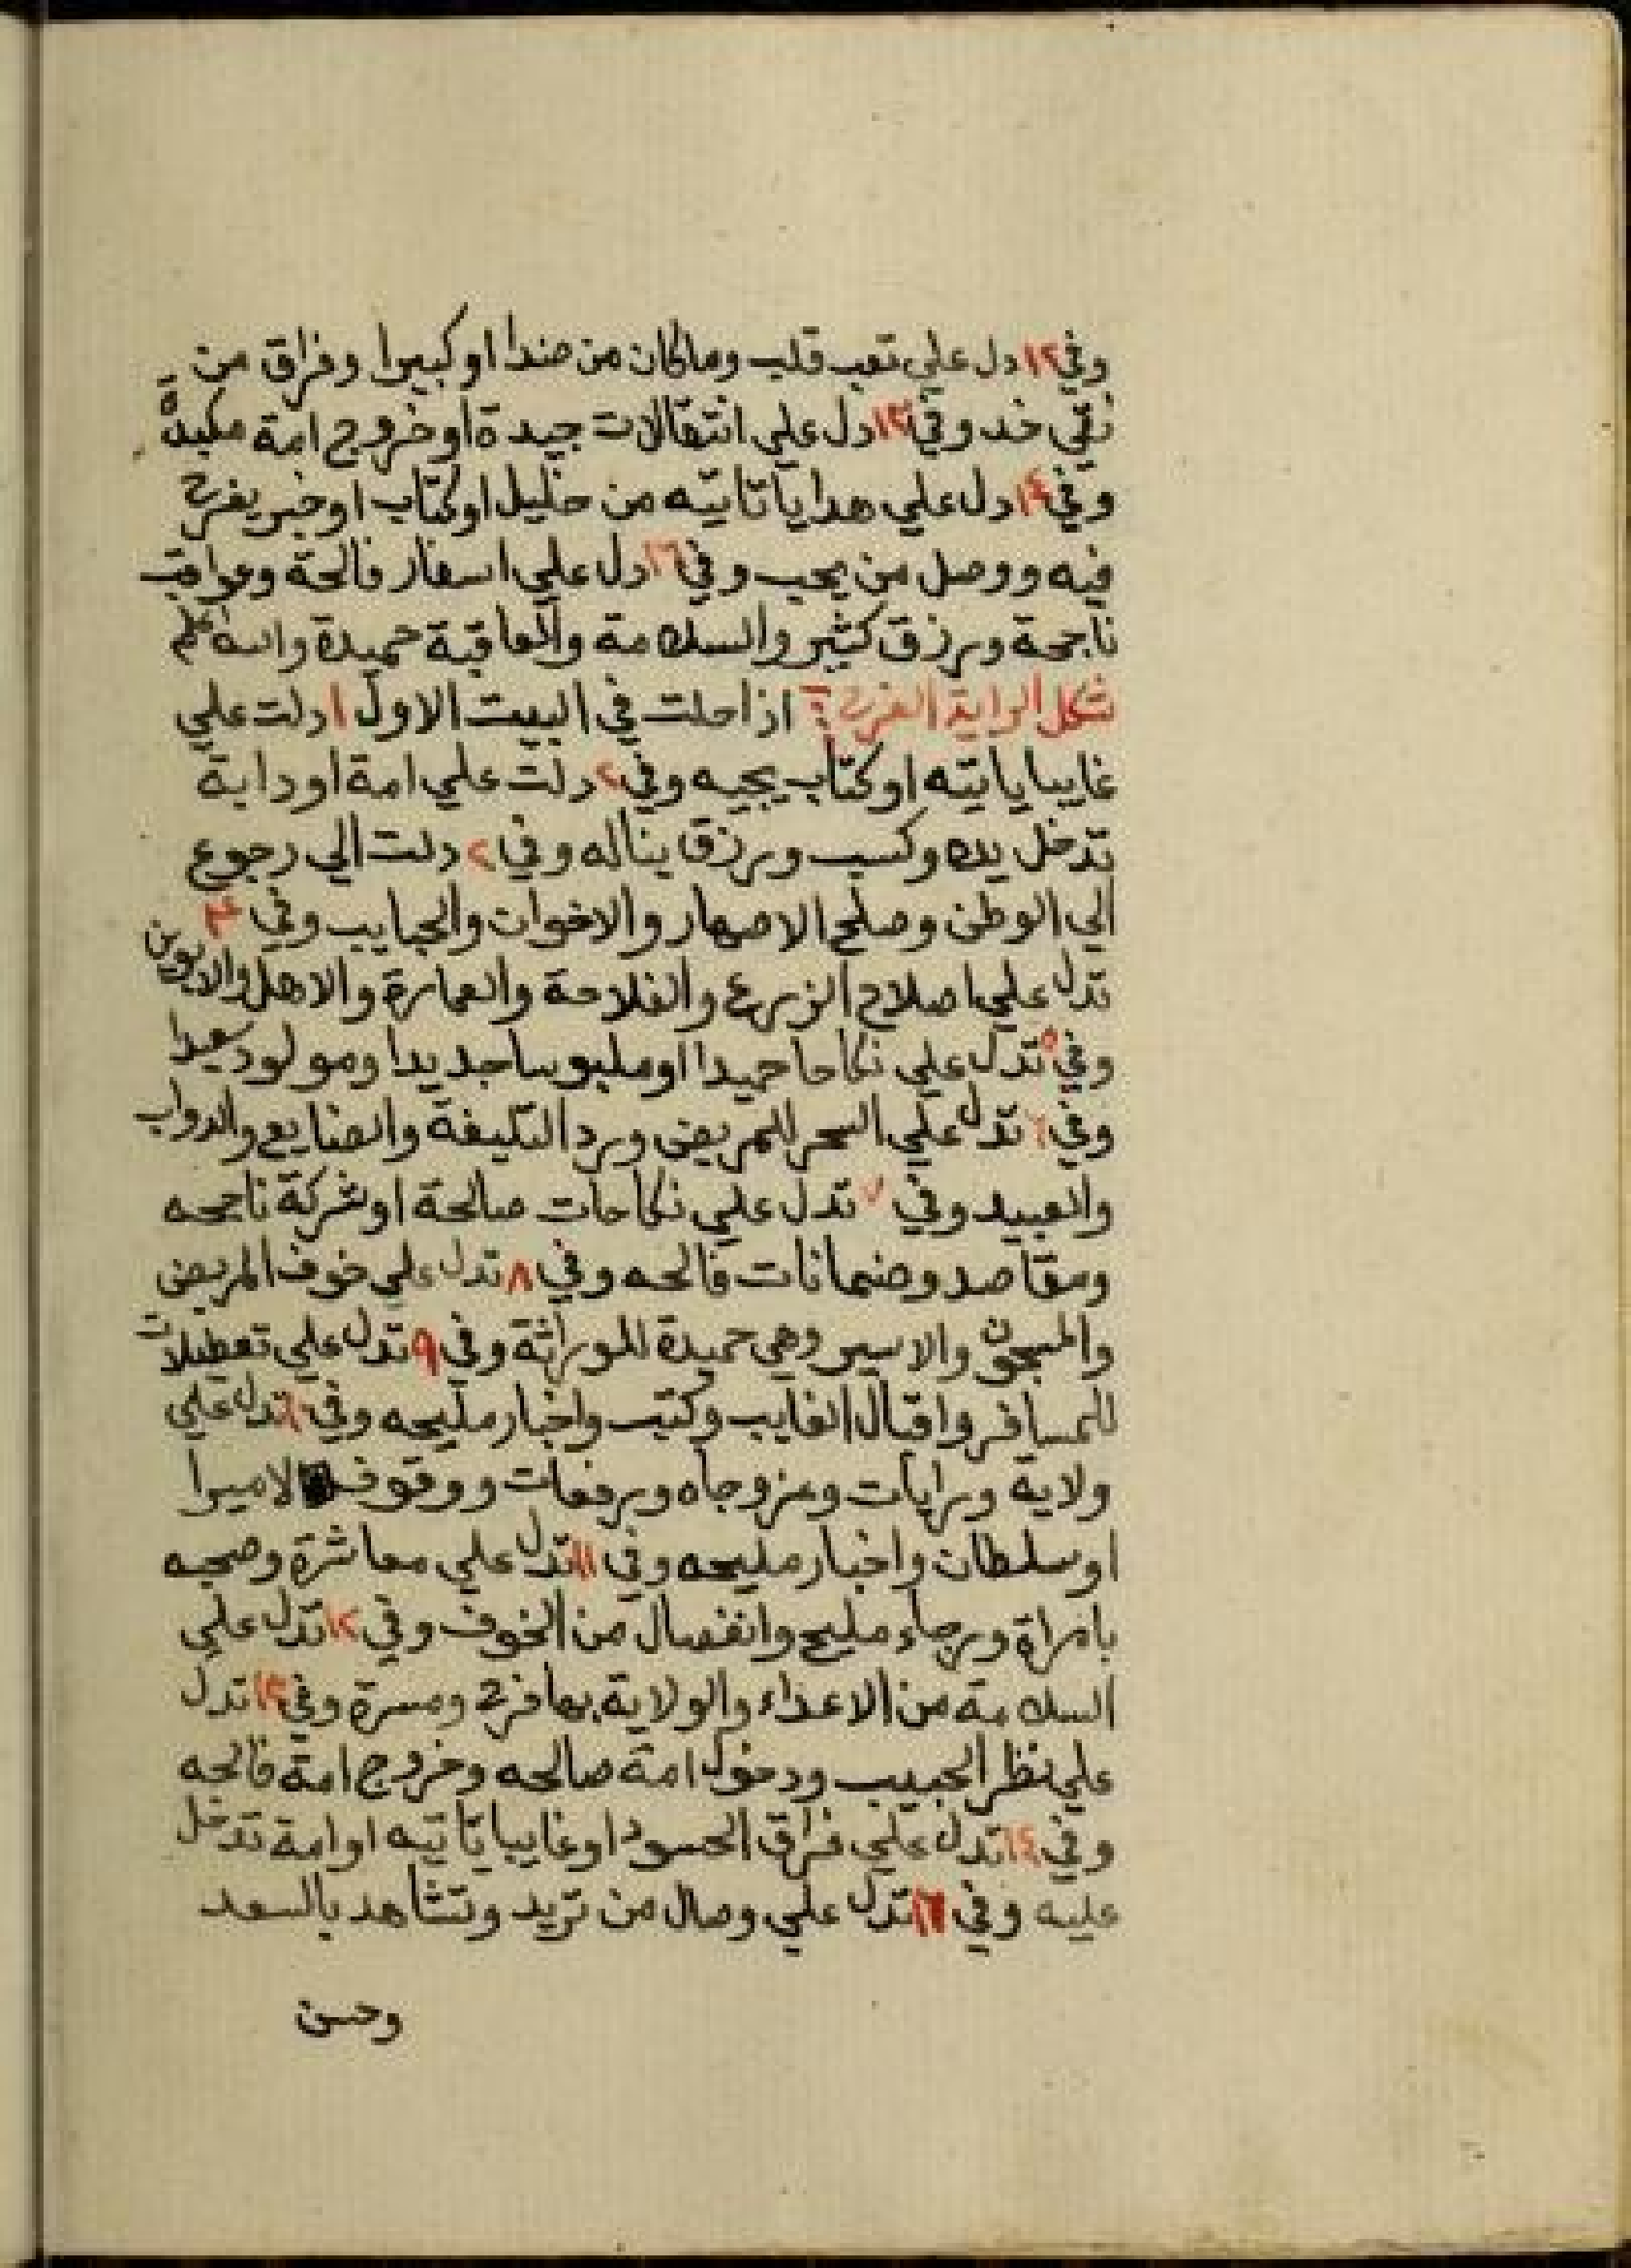 وفي ١٢ دل علي تعب قلب وماكان من ضدا او كبيرا وفراق من
نقي خد وفي ١٣ دل علي انتقالات جيدة او خروج امة
وفي ١٤ دل علي هدايا تاتيه من خليل او كتاب او خبر يفرح
فيه ووصل من يحب وفي ١٦ دل علي اسفار فالحة وعواقب
ناجحة ورزق كثير والسلامة والعاقبة حميدة والله اعلم
شكل الراية الفرح اذا حلت في البيت الاول ١ دلت علي
غايبا ياتيه او كتاب يجيه وفي ٢ دلت علي امة او داية
تدخل يده وكسب ورزق يناله وفي ٢ دلت الي رجوع
الي الوطن وصلح الاصهار والاخوات والحبايب وفي ٤
تدل علي اصلاح الزرع والفلاحة والعمارة والاهل والابوين
وفي ٥ تدل علي نكاحا حميدا او ملبوسا جديدا ومولود سعيدا
وفي ٦ تدل علي السحر للمريض ورد التكيفة والصنايع والدواب
والعبيد وفي ٧ تدل علي نكاحات صالحة او شركة ناجحه
ومقاصد وضمانات فالحه وفي ٨ تدل علي خوف المريض
والمسجون والاسير وهي حميدة للموراثة وفي ٩ تدل علي تعطيلات
للمسافر واقبال الغايب وكتب واخبار مليحه وفي ١٠ تدل علي
ولاية ورايات وعز وجاه ورفعات ووقوف لاميرا
او سلطان واخبار مليحه وفي ١١ تدل علي معاشرة وصحبه
بامراة ورجاء مليح وانفصال من الخوف وفي ١٢ تدل علي
السلامة من الاعداء والولاية بها فرح ومسرة وفي ١٣ تدل
علي نظر الحبيب ودخول امة صالحه وخروج امة فالحه
وفي ١٤ تدل علي فراق الحسود او غايبا تاتيه او امة تدخل
عليه وفي ١٦ تدل علي وصال من تريد وتشاهد بالسعد
وحسن